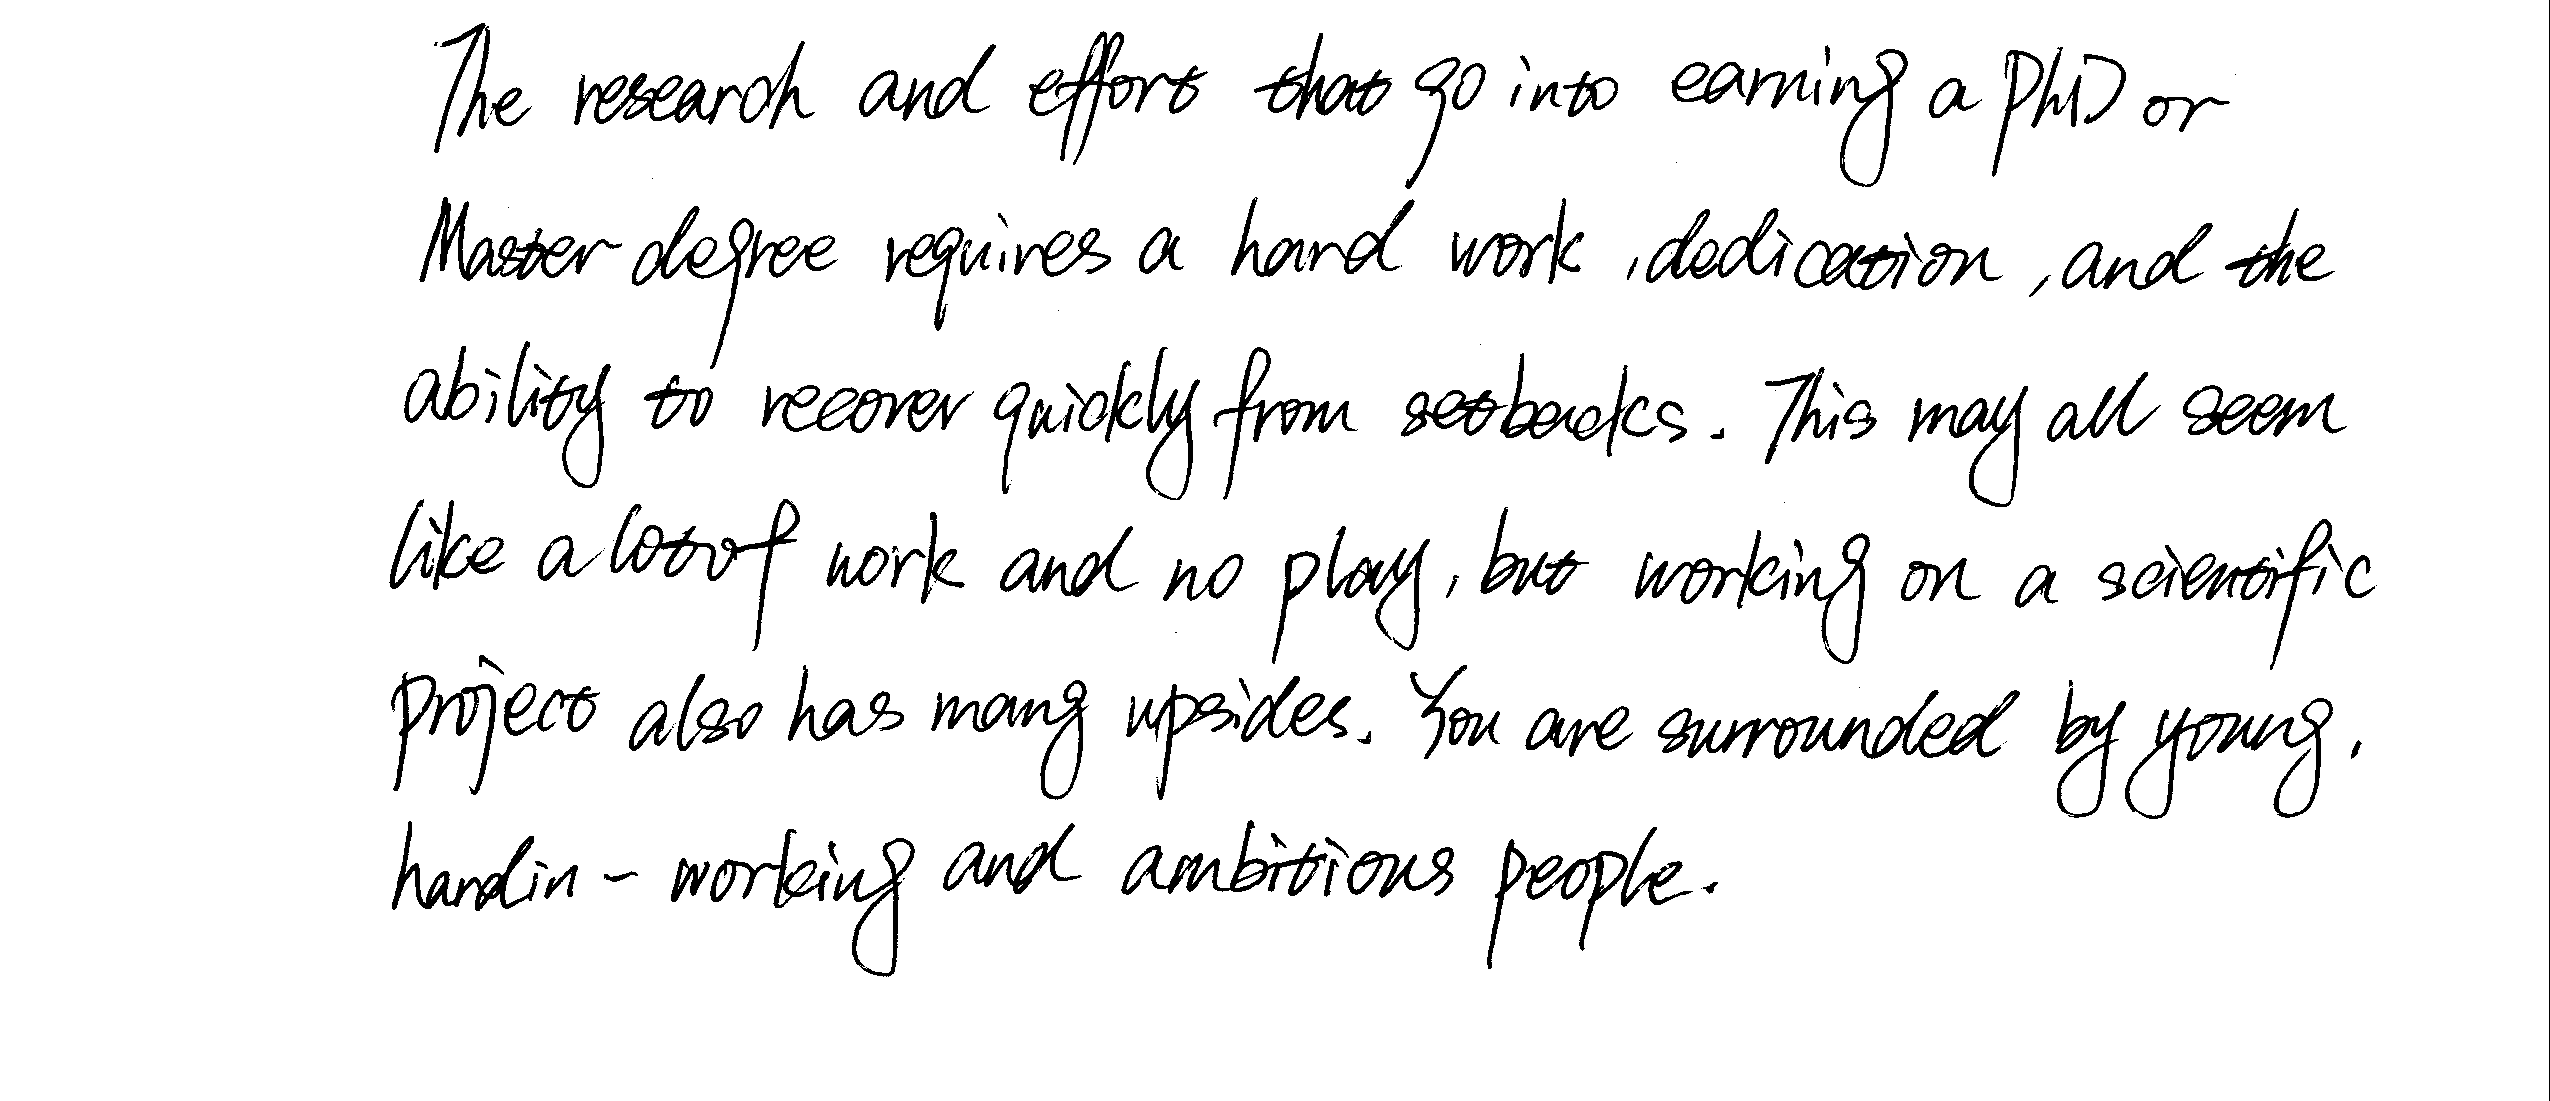 The research and effort that go into earning a PhD or
Master degree requires a hard work, dedication, and the
ability to recover quickly from setbacks. This may all seem
like a lot of work and no play, but working on a scientific
project also has many upsides. You are surrounded by young,
hardin - working and ambitious people.